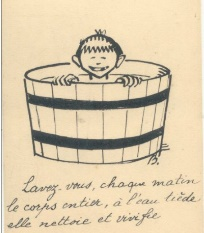 B.
Lavez-vous, chaque matin
le corps entier, à l'eau tiède
elle nettoie et vivifie